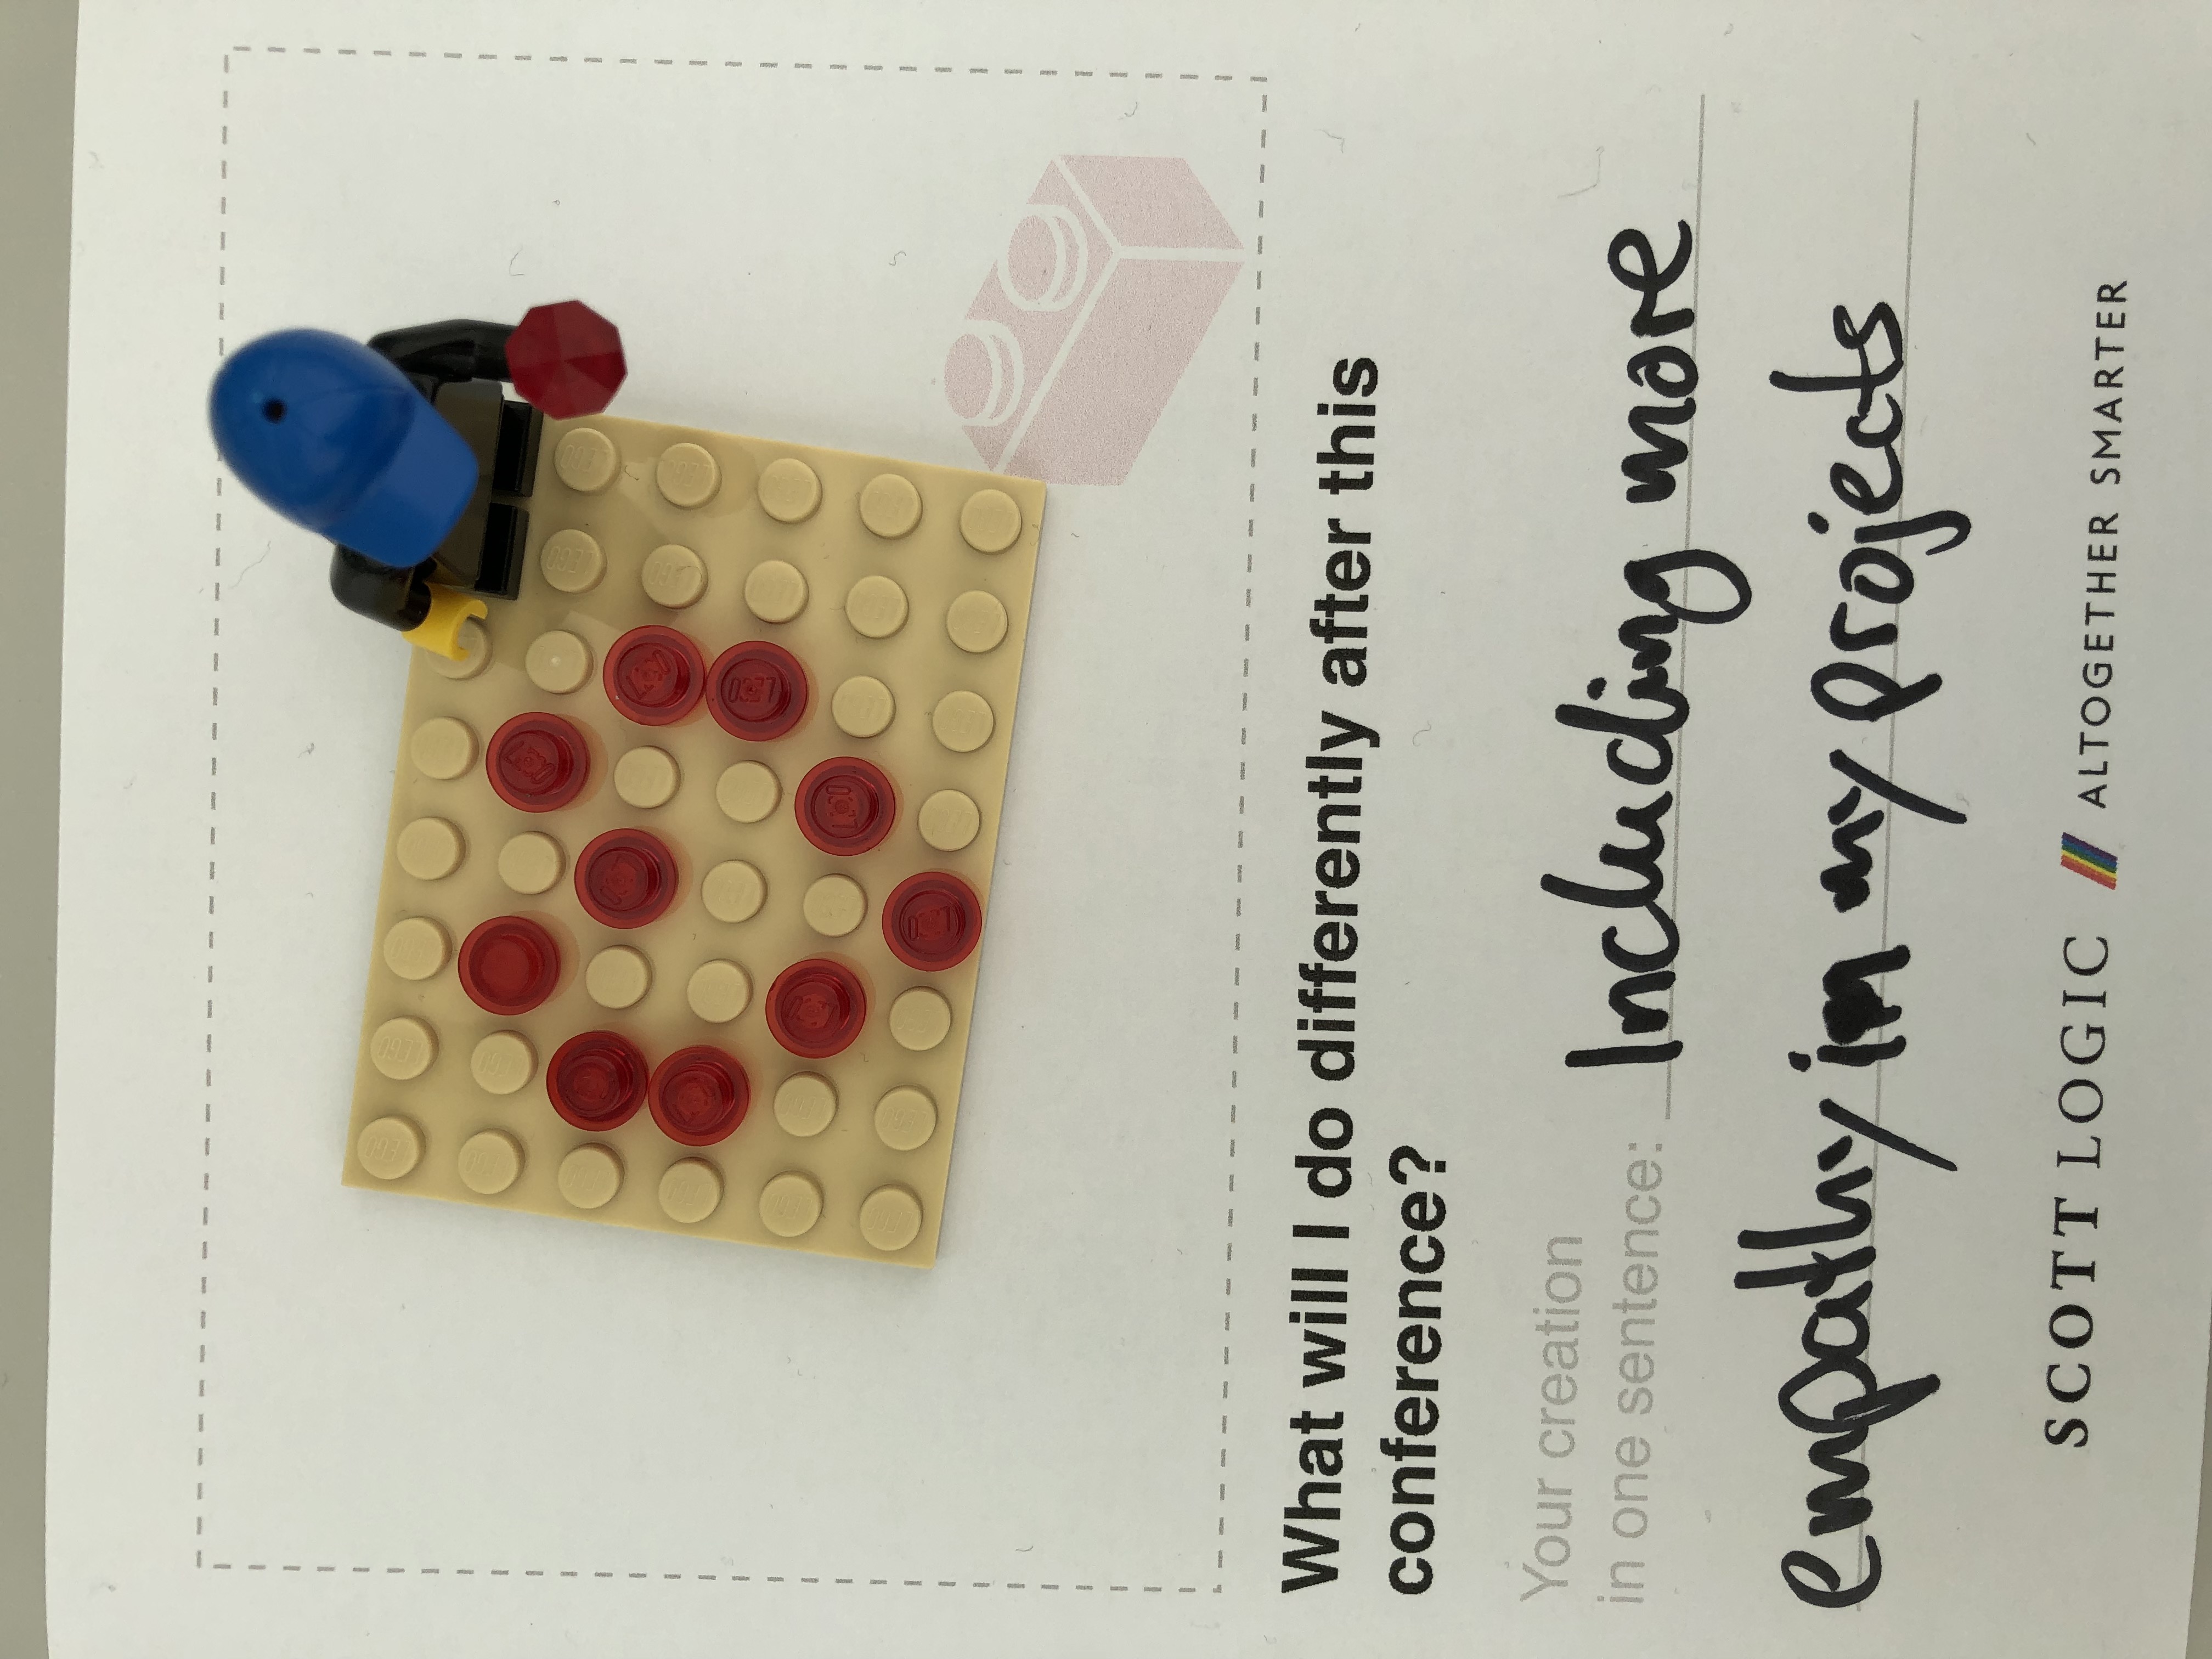 What will I do differently after this
conference?
Your creation
in one sentence: Including more
empathy in my projects
SCOTT LOGIC ALTOGETHER SMARTER